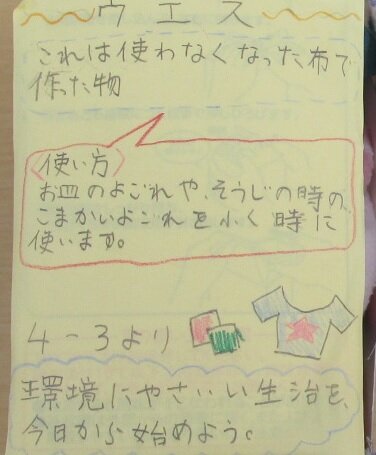 ウエス
これは使わなくなった布で
作った物
〈使い方〉
お皿のよごれや、そうじの時の、
こまかいよごれを小く時に
使います。
4-3より
環境にやさいい生治を、
今日から始めよう。